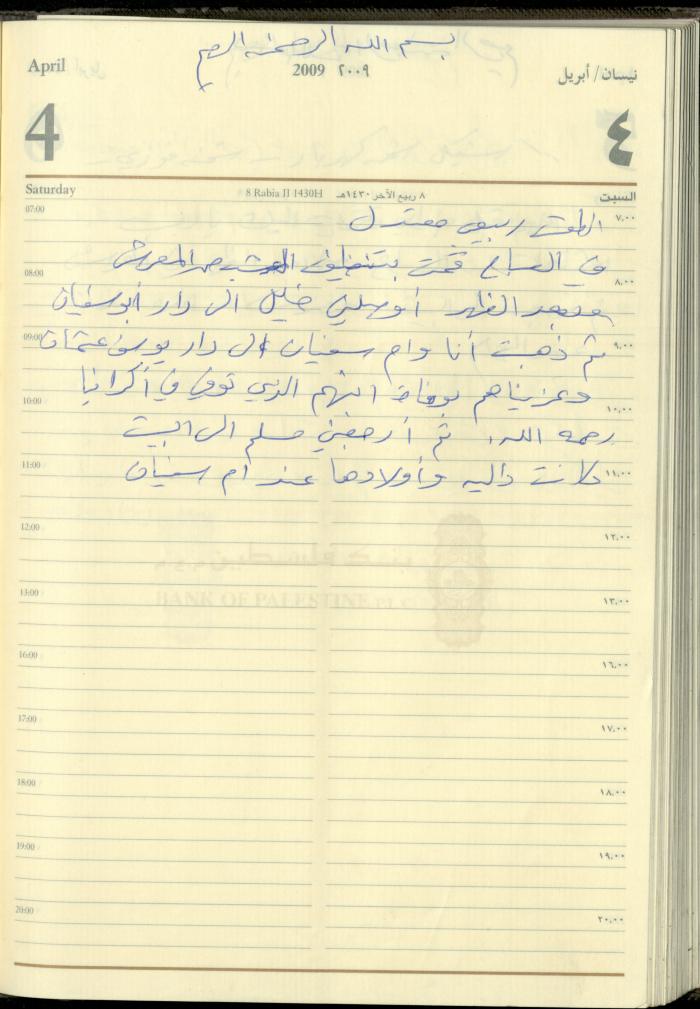 بسم الله الرحمن الرحيم
April
2009 ٢٠٠٩
نيسان/ أبريل
4
٤
Saturday
8 Rabia II 1430H
٨ ربيع الآخر ١٤٣٠هـ
السبت
07:00 ٧,٠٠
الطقس ربيعي معتدل
في الصباح قمت بتنظيف العشب من المعرش
08:00 ٨,٠٠
وبعد الظهر أوصلني خليل الى دار أبو سفيان
09:00 ٩,٠٠
ثم ذهبت أنا وام سفيان الى دار يوسف عثمان
وعزيناهم بوفاة ابنهم الذي توفي في أكرانيا
10:00 ١٠,٠٠
رحمه الله. ثم أرجعني مسلم الى البيت
11:00 ١١,٠٠
كانت داليه وأولادها عند أم سفيان
12:00 ١٢,٠٠
بنك فلسطين
BANK OF PALESTINE
13:00 ١٣,٠٠
16:00 ١٦,٠٠
17:00 ١٧,٠٠
18:00 ١٨,٠٠
19:00 ١٩,٠٠
20:00 ٢٠,٠٠